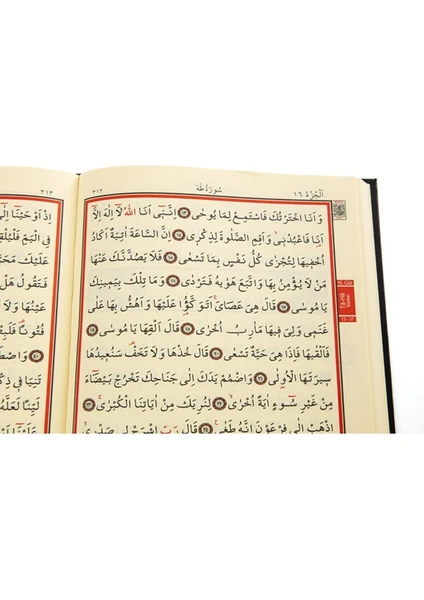 اَلْجُزْءُ ١٦
سُورَةُ طٰهٰ
٣١٢
وَاَنَا اخْتَرْتُكَ فَاسْتَمِعْ لِمَا يُوحٰى ﴿١٣﴾ اِنَّنٖٓي اَنَا اللّٰهُ لَٓا اِلٰهَ اِلَّٓا
اَنَا فَاعْبُدْنٖي وَاَقِمِ الصَّلٰوةَ لِذِكْرٖي ﴿١٤﴾ اِنَّ السَّاعَةَ اٰتِيَةٌ اَكَادُ
اُخْفٖيهَا لِتُجْزٰى كُلُّ نَفْسٍ بِمَا تَسْعٰى ﴿١٥﴾ فَلَا يَصُدَّنَّكَ عَنْهَا
مَنْ لَا يُؤْمِنُ بِهَا وَاتَّبَعَ هَوٰيهُ فَتَرْدٰى ﴿١٦﴾ وَمَا تِلْكَ بِيَمٖينِكَ
يَا مُوسٰى ﴿١٧﴾ قَالَ هِيَ عَصَايَۚ اَتَوَكَّؤُ۬ا عَلَيْهَا وَاَهُشُّ بِهَا عَلٰى
غَنَمٖي وَلِيَ فٖيهَا مَاٰرِبُ اُخْرٰى ﴿١٨﴾ قَالَ اَلْقِهَا يَا مُوسٰى ﴿١٩﴾
فَاَلْقٰيهَا فَاِذَا هِيَ حَيَّةٌ تَسْعٰى ﴿٢٠﴾ قَالَ خُذْهَا وَلَا تَخَفْ سَنُعٖيدُهَا
سٖيرَتَهَا الْاُو۫لٰى ﴿٢١﴾ وَاضْمُمْ يَدَكَ اِلٰى جَنَاحِكَ تَخْرُجْ بَيْضَٓاءَ
مِنْ غَيْرِ سُٓوءٍ اٰيَةً اُخْرٰى ﴿٢٢﴾ لِنُرِيَكَ مِنْ اٰيَاتِنَا الْكُبْرٰى ﴿٢٣﴾
اِذْهَبْ اِلٰى فِرْعَوْنَ اِنَّهُ طَغٰى ﴿٢٤﴾ قَالَ رَبِّ اشْرَحْ لٖي صَدْرٖي
٣١٣
اِذْ اَوْحَيْنَٓا اِلٰٓى
فِي الْيَمِّ فَلْيُلْقِهِ
عَلَيْكَ مَحَبَّةً
فَتَقُولُ هَلْ
عَيْنُهَا وَلَا
فُتُونًا فَلَبِثْتَ
﴿٤٠﴾ وَاصْطَنَعْتُكَ
تَنِيَا فٖي ذِكْرٖي
لَيِّنًا لَعَلَّهُ
عَلَيْنَٓا